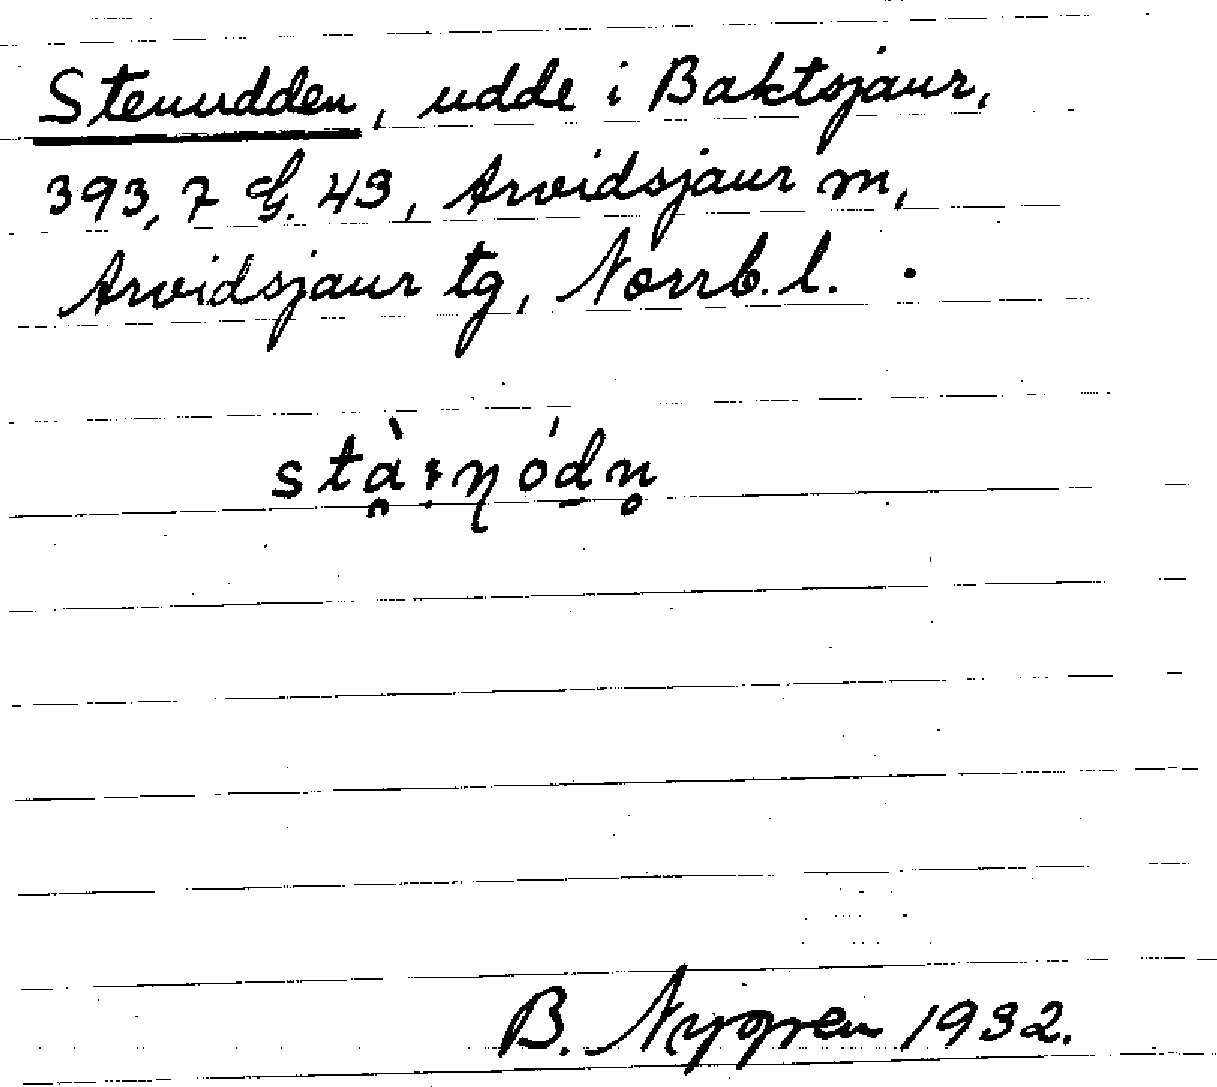 Stenudden, udde i Baktsjaur,
393, 7 G. 43, Arvidsjaur m,
Arvidsjaur tg, Norrb. l.
B. Nygren 1932.